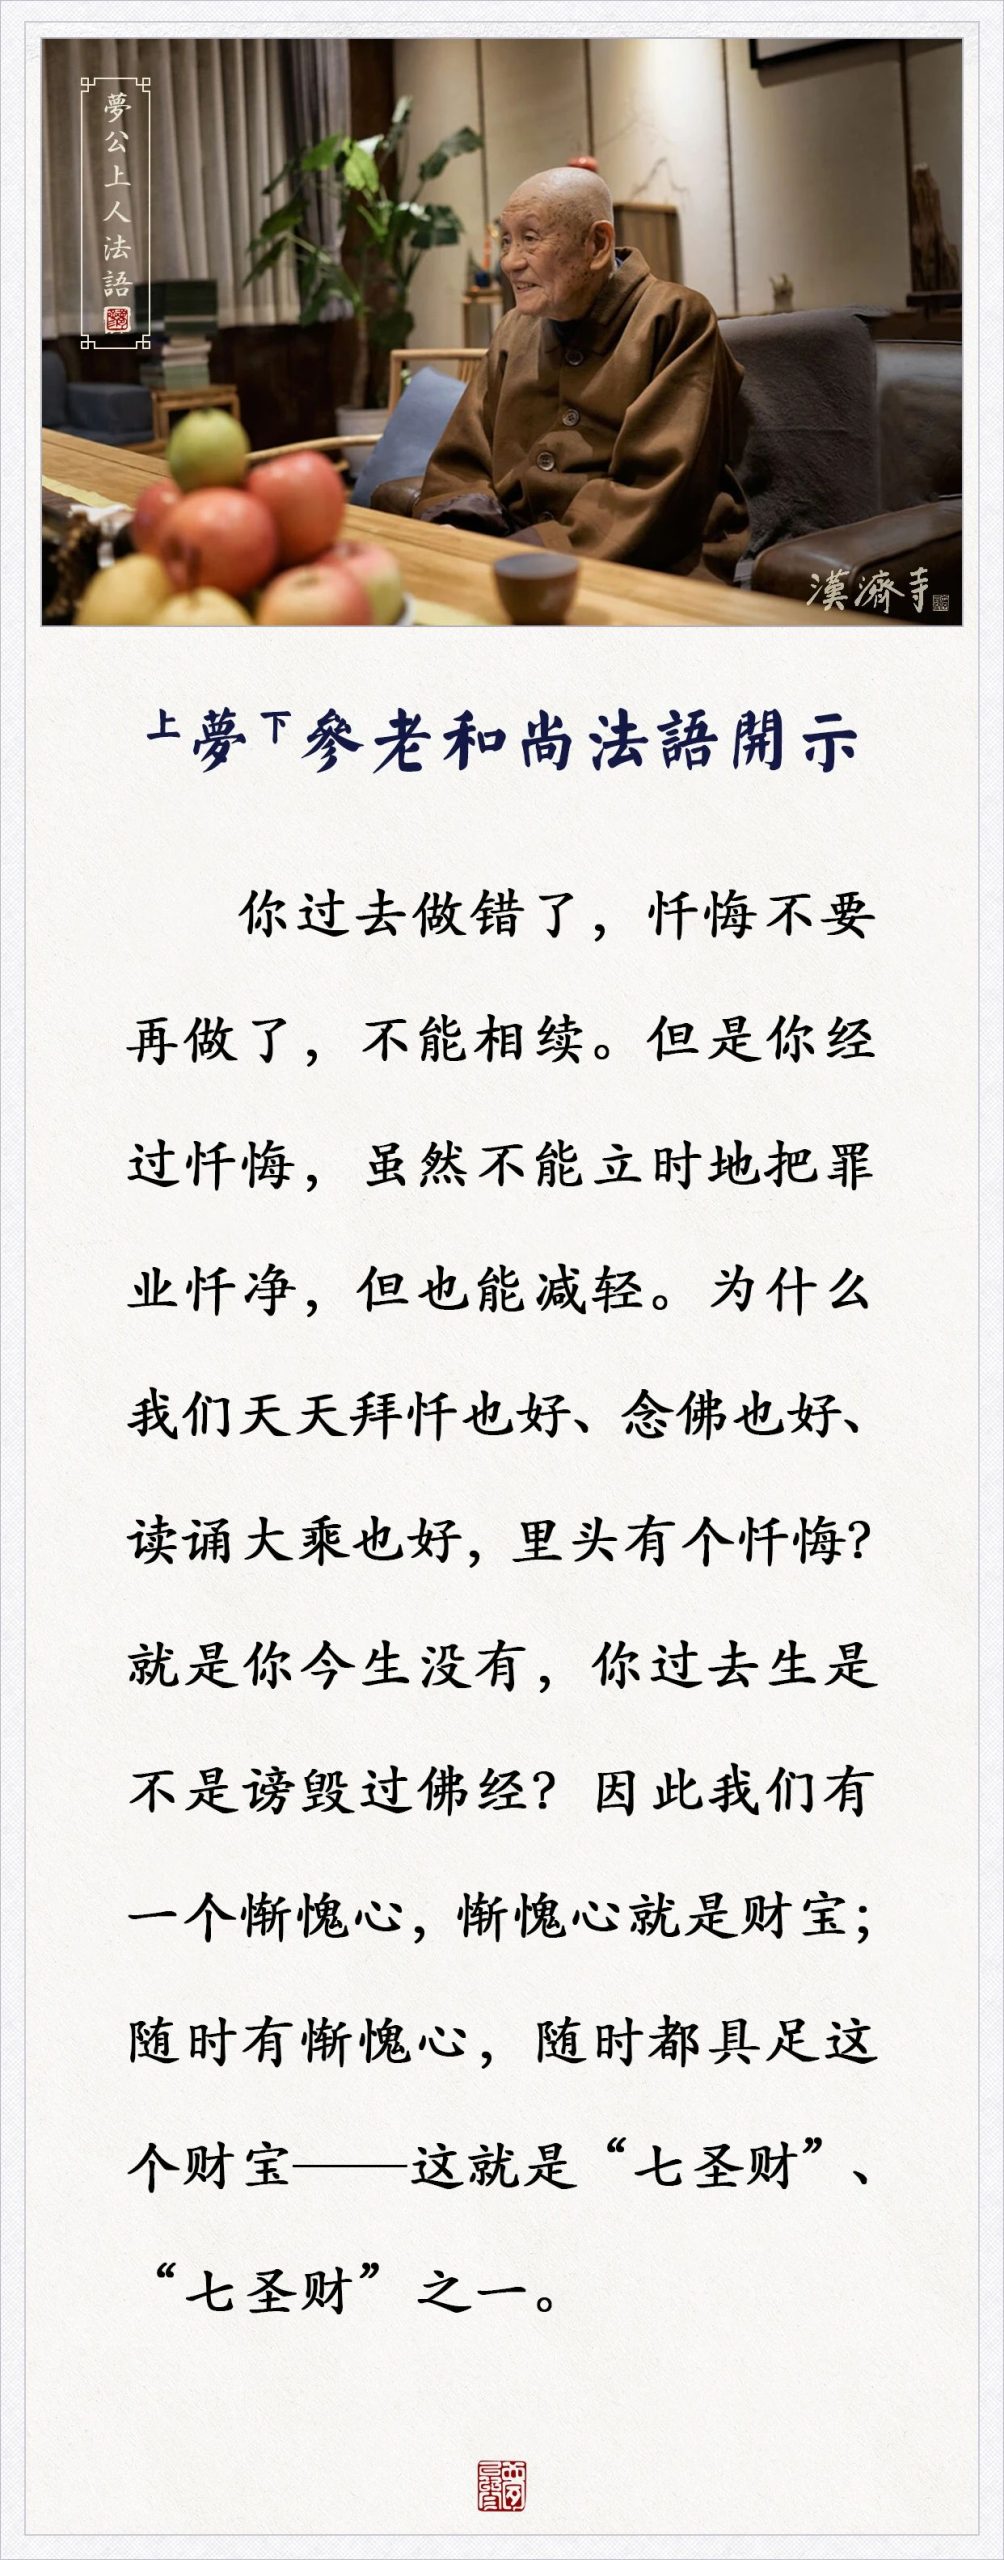 夢公上人法語
漢濟寺
上夢下參老和尚法語開示
你过去做错了，忏悔不要
再做了，不能相续。但是你经
过忏悔，虽然不能立时地把罪
业忏净，但也能减轻。为什么
我们天天拜忏也好、念佛也好、
读诵大乘也好，里头有个忏悔？
就是你今生没有，你过去生是
不是谤毁过佛经？因此我们有
一个惭愧心，惭愧心就是财宝；
随时有惭愧心，随时都具足这
个财宝——这就是“七圣财”、
“七圣财”之一。